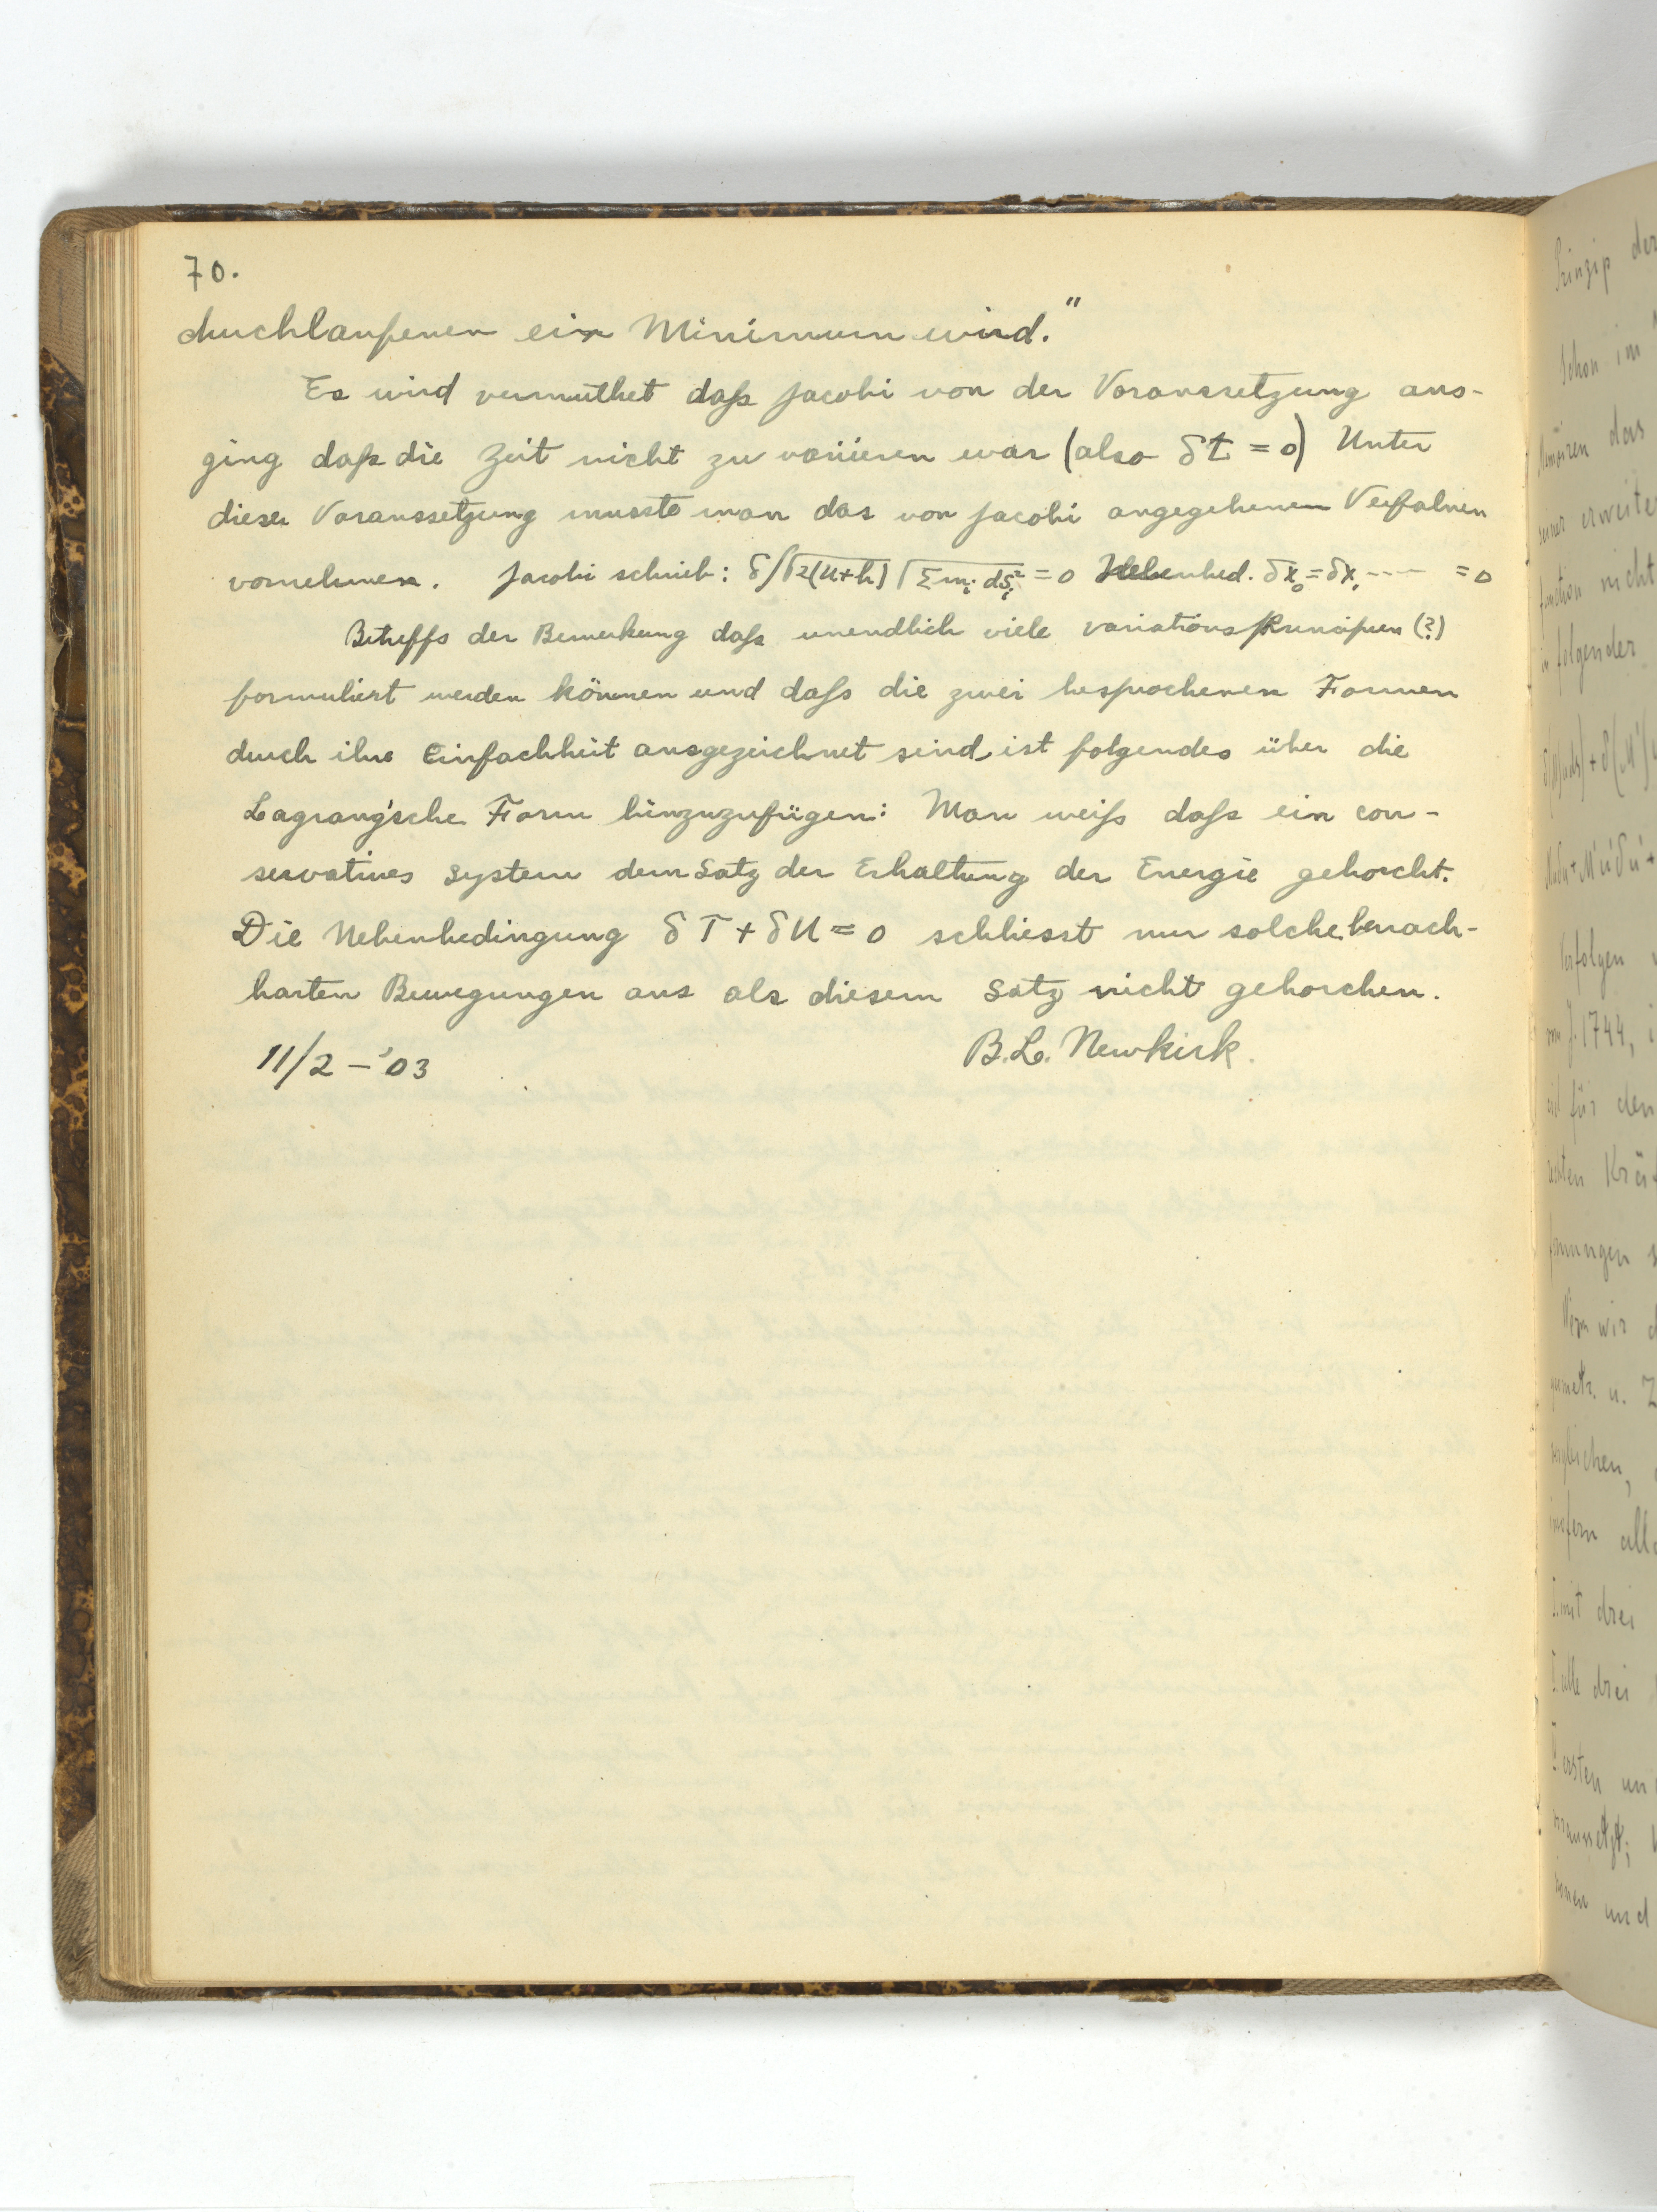 70.
durchlaufenen ein Minimum wird."
Es wird vermuthet daß Jacobi von der Voraussetzung aus-
ging daß die Zeit nicht zu variieren war (also δt = 0) Unter
dieser Voraussetzung musste man das von Jacobi angegebenen Verfahren
vornehmen. Jacobi schrieb: δ∫√2(U+h) √Σmᵢ dsᵢ² = 0 Nebenbed. δx₀ = δx₁ ---- = 0
Betreffs der Bemerkung daß unendlich viele variations Principien (?)
formuliert werden können und daß die zwei besprochenen Formen
durch ihre Einfachheit ausgezeichnet sind, ist folgendes über die
Lagrang'sche Form hinzuzufügen: Man weiß daß ein con-
servatives System dem Satz der Erhaltung der Energie gehorcht.
Die Nebenbedingung δT + δU = 0 schliesst nur solche benach-
barten Bewegungen aus als diesem Satz nicht gehorchen.
11/2 – '03 B.L. Newkirk.
Prinzip der
Schon im
das
seiner erweiter
function nicht
in folgender
Verfolgen
vom J. 1744,
für den
Krä
Wenn wir
geometr. u.
I. mit drei
I. alle drei
I. ersten un
und